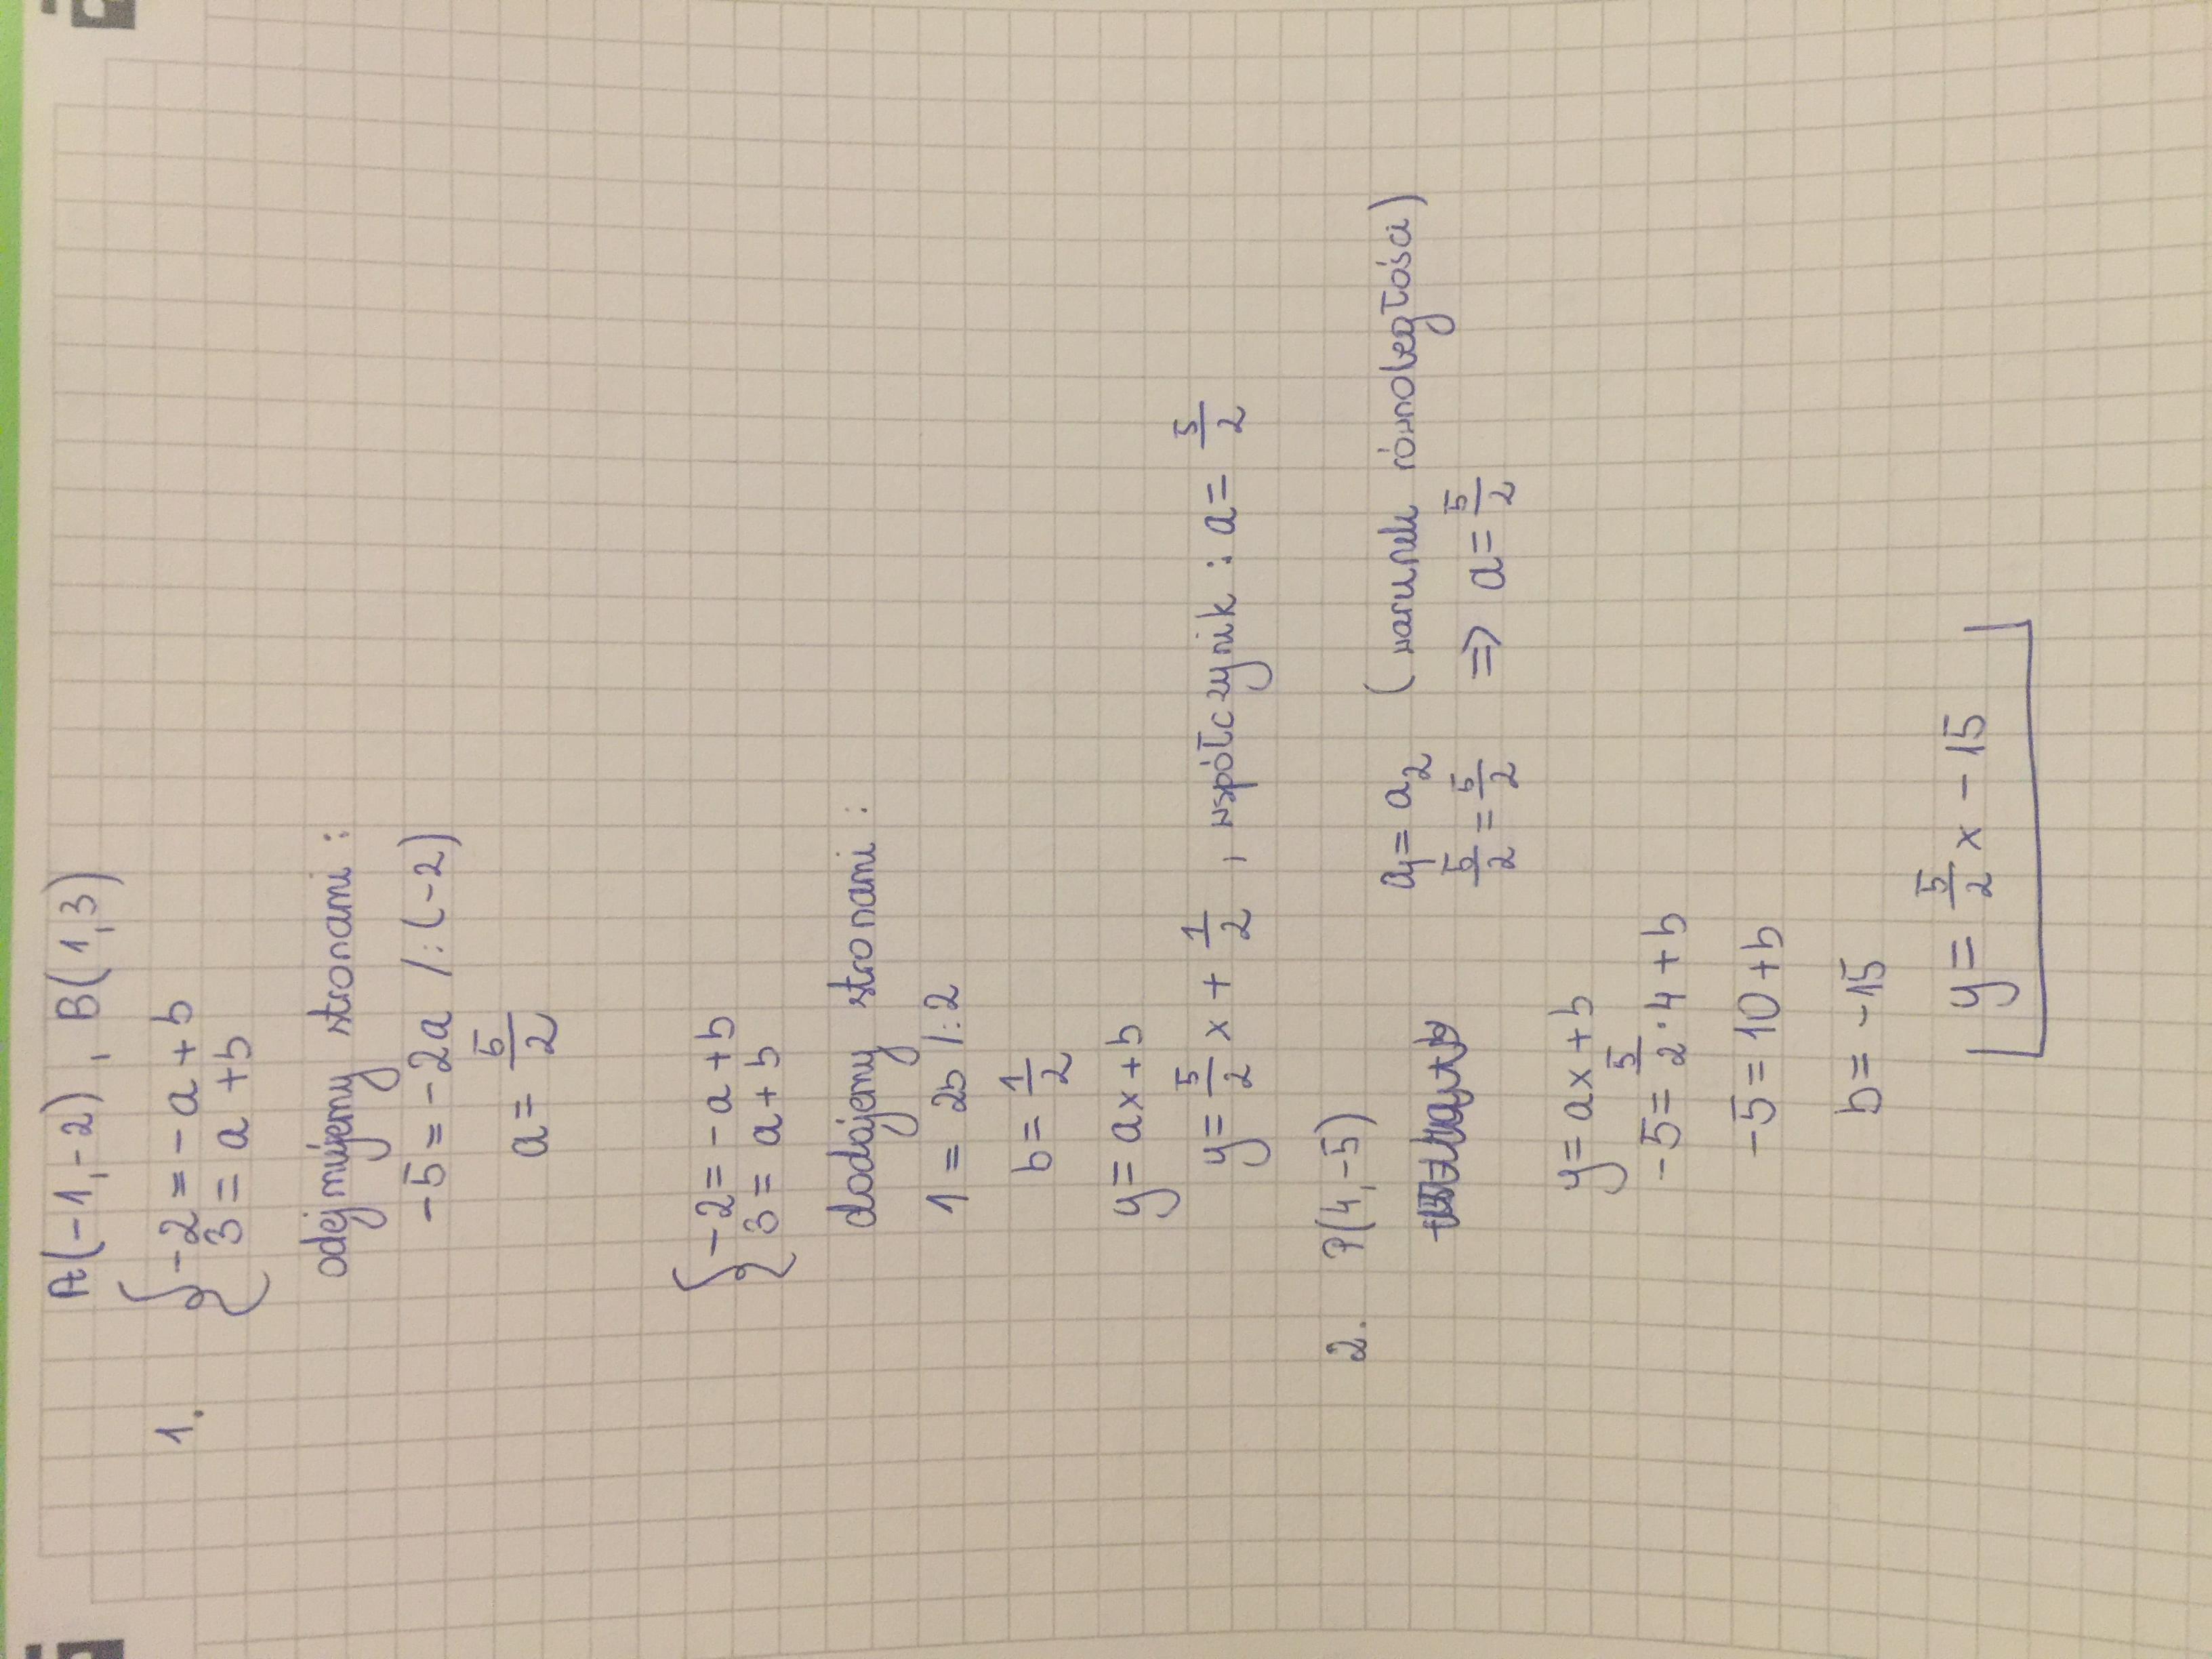 A(-1,-2), B(1,3)
1. { -2 = -a + b
3 = a + b
odejmujemy stronami:
-5 = -2a /:(-2)
a = 5/2
{ -2 = -a + b
3 = a + b
dodajemy stronami:
1 = 2b /:2
b = 1/2
y = ax + b
y = 5/2 x + 1/2, współczynnik: a = 5/2
2. P(4,-5)
a₁ = a₂ (warunek równoległości)
5/2 = 5/2 => a = 5/2
y = ax + b
-5 = 5/2 · 4 + b
-5 = 10 + b
b = -15
y = 5/2 x - 15